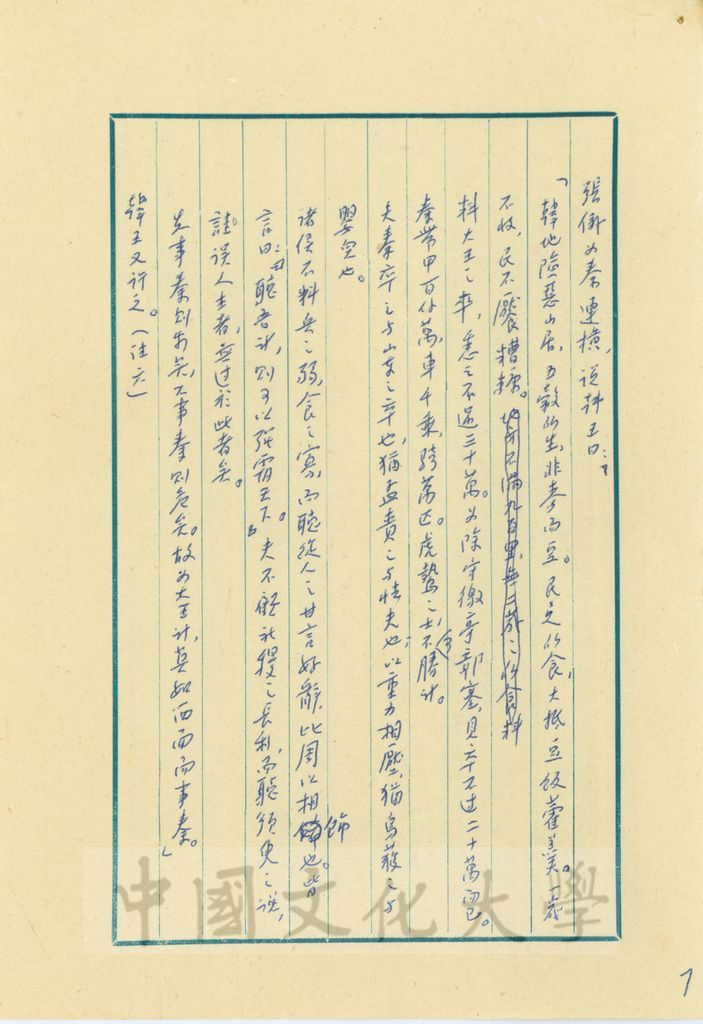 張儀為秦連橫，說韓王曰：
「韓地險惡山居，五穀所生，非麥而豆。民之所食，大抵豆飯藿羹。一歲
不收，民不饜糟糠。地方不滿九百里，無二歲之所食料
料大王之卒，悉之不過三十萬。為除守徼亭鄣塞，見卒不過二十萬而已。
秦帶甲百餘萬，車千乘，騎萬匹。虎鷙之士不可勝計。
夫秦卒之與山東之卒也，猶孟賁之與怯夫也；以重力相壓，猶烏獲之與
嬰兒也。
諸侯不料兵之弱，食之寡，而聽從人之甘言好辭，比周以相飾也。皆
言曰：『聽吾計，則可以強霸天下。』夫不顧社稷之長利，而聽須臾之說，
詿誤人主者，無過於此者矣。
先事秦則安矣，不事秦則危矣。故為大王計，莫如西面而事秦。」
韓王又許之。（注六）
中國文化大學
7